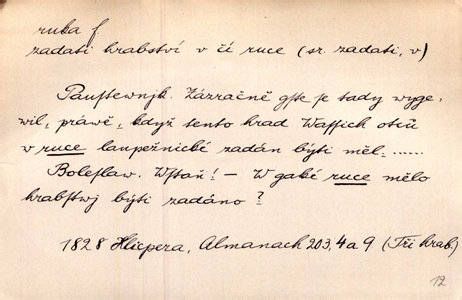 ruka f
zadati hrabství v čí ruce (sr. zadati, v)
Pauſtewnjk. Zázračně gſte ſe tady wyge-
wil, práwě, když tento hrad Waſſich otců
v ruce laupežnické zadán býti měl......
Boleſlaw. Wſtaň! – W gaké ruce mělo
hrabſtwj býti zadáno?
1828 Klicpera, Almanach 203, 4 a 9 (Tři hrab.)
12